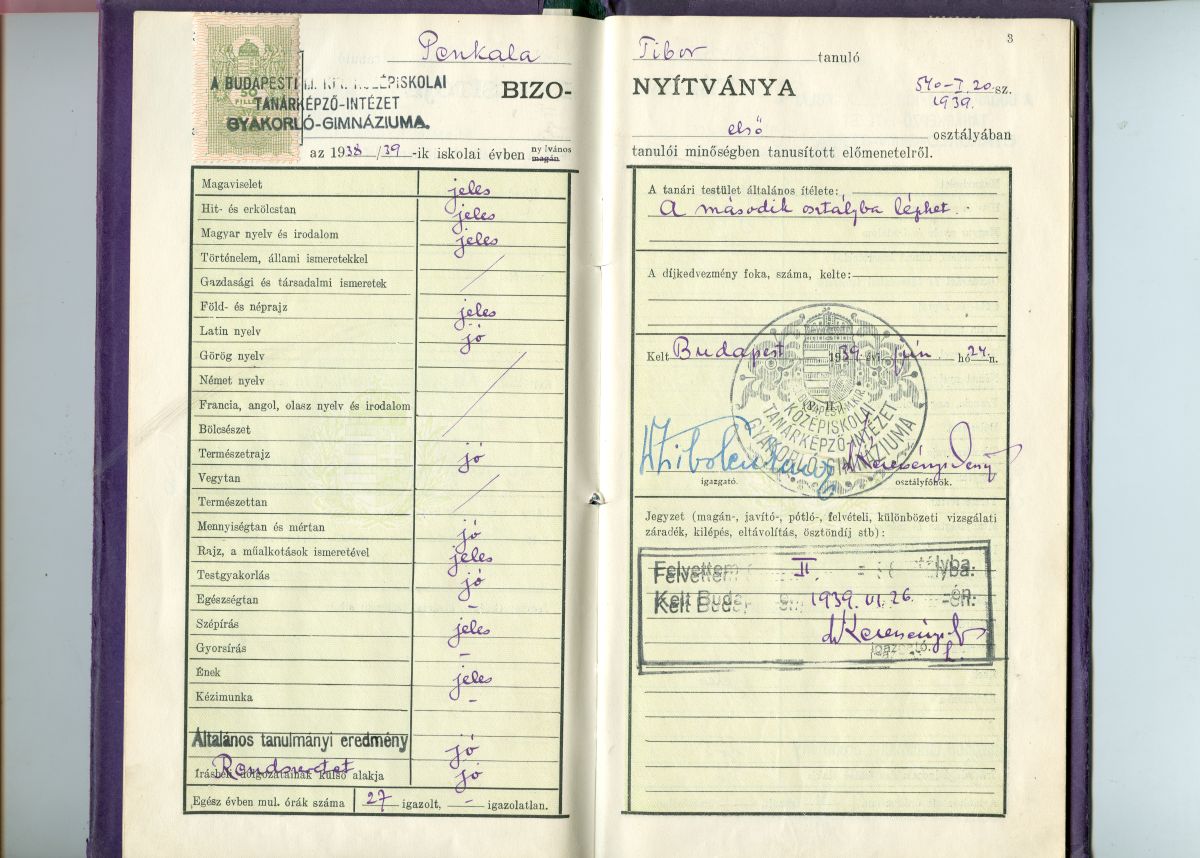 Penkala
50
A BUDAPESTI KÖZÉPISKOLAI
TANÁRKÉPZŐ-INTÉZET
GYAKORLÓ-GIMNÁZIUMA.
BIZO-
az 1938/39-ik iskolai évben nyilvános magán
Magaviselet jeles
Hit- és erkölcstan jeles
Magyar nyelv és irodalom jeles
Történelem, állami ismeretekkel
Gazdasági és társadalmi ismeretek
Föld- és néprajz jeles
Latin nyelv jó
Görög nyelv
Német nyelv
Francia, angol, olasz nyelv és irodalom
Bölcsészet
Természetrajz jó
Vegytan
Természettan
Mennyiségtan és mértan jó
Rajz, a műalkotások ismeretével jeles
Testgyakorlás jó
Egészségtan -
Szépírás jeles
Gyorsírás -
Ének jeles
Kézimunka -
Általános tanulmányi eredmény jó
Rendszeretet
dolgozatainak külső alakja jó
Egész évben mul. órák száma 27 igazolt, - igazolatlan.
3
Tibor tanuló
NYÍTVÁNYA 540-I.20. sz.
1939.
első osztályában
tanulói minőségben tanusított előmenetelről.
A tanári testület általános ítélete:
A második osztályba léphet.
A díjkedvezmény foka, száma, kelte:
Kelt Budapest 1939. évi jún. hó 24. n.
KÖZÉPISKOLAI
TANÁRKÉPZŐ-INTÉZET
GYAKORLÓ GIMNÁZIUMA
igazgató. osztályfőnök.
Jegyzet (magán-, javító-, pótló-, felvételi, különbözeti vizsgálati
záradék, kilépés, eltávolítás, ösztöndíj stb):
Felvettem II. osztályba.
Kelt Buda 1939. VI. 26. -én.
dr Keresényi
igazgató.